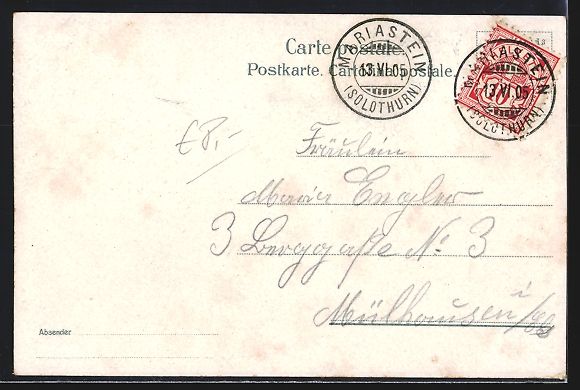 Carte postale.
Postkarte. Cartolina postale.
MARIASTEIN
13.VI.05
(SOLOTHURN)
MARIASTEIN
13.VI.05
(SOLOTHURN)
10
€8,-
Fräulein
Maria Engler
3 Berggasse No. 3
Mülhausen i/Els
Absender